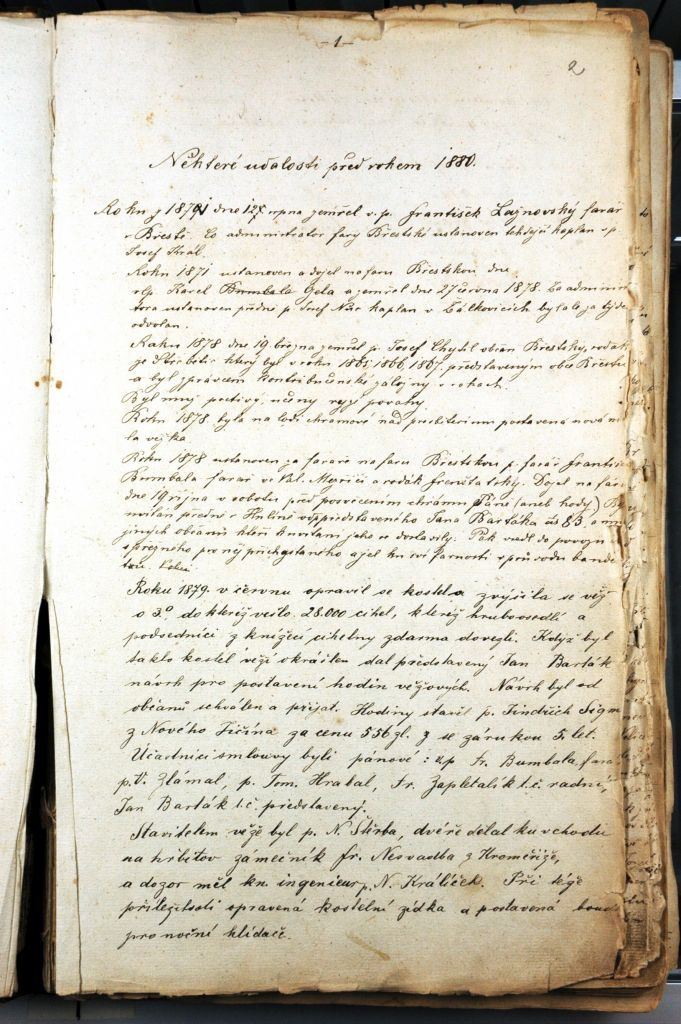 -1-
2
Některé události před rokem 1880.
Roku 1871 dne 12. srpna zemřel v. p. František Lajnovský farář
v Břestě. Za administrátor fary Břestské ustanoven tehdejší kaplan p.
Josef Král.
Roku 1871 ustanoven a dojel na faru Břestskou dne
vlp. Karel Gela a zemřel dne 27 června 1878. Za admini
tora ustanoven p. Josef kaplan v Tálkovicích byl ale za týden
odvolán.
Roku 1878 dne 19 března zemřel p. Josef Chytil občan Břestský, rodák
ze Střebětic který byl v roku 1865, 1866, 1867, představeným obce Břestu
a byl správcem kontribučenské záložny v rokách.
Byl muž poctivý, učený povahy
Roku 1878 byla na lodi chrámové nad presbiterium postavena nová
la vejška
Roku 1878 ustanoven za faráře na faru Břestskou p. farář Franti
Bumbala farář ve Val. Meziříčí a rodák Frenštátský. Dojel na far
dne 19 října v sobotu před posvícením chrámu Páně (aneb hody)
uvítán předně v Hulíně představeného Jana Bartáka čís 83, a
jiných občanů kteří k uvítání jako se dostavily. Pak vsedl do povozu
spřežného pro něj přichystaného a jel ku své farnosti v průvodu bande
Roku 1879. v červnu opravil se kostel a zvýšila se věž
o 3° do kteréž vešlo 28.000 cihel, kteréž hrubosedlí a
podsedníci z knížecí cihelny zdarma dovezli. Když byl
takto kostel věží okrášlen dal představený Jan Barták
návrh pro postavení hodin věžových. Návrh byl od
občanů schválen a přijat. Hodiny stavil p. Jindřich Sigm
z Nového Jičína za cenu 556 zl. se zárukou 5. let.
Účastníci smlouvy byli pánové: vp Fr. Bumbala, fará
p. V. Zlámal, p. Tom. Hrabal, Fr. Zapletalík t. č. radní,
Jan Barták t. č. představený.
Stavitelem věže byl p. N. Štěrba, dvéře dělal ku vchodu
na hřbitov zámečník Fr. Nesvadba z Kroměříže,
a dozor měl kn. ingenieur p. N. Králíček. Při téže
příležitosti opravena kostelní zídka a postavena bouda
pro noční hlídače.